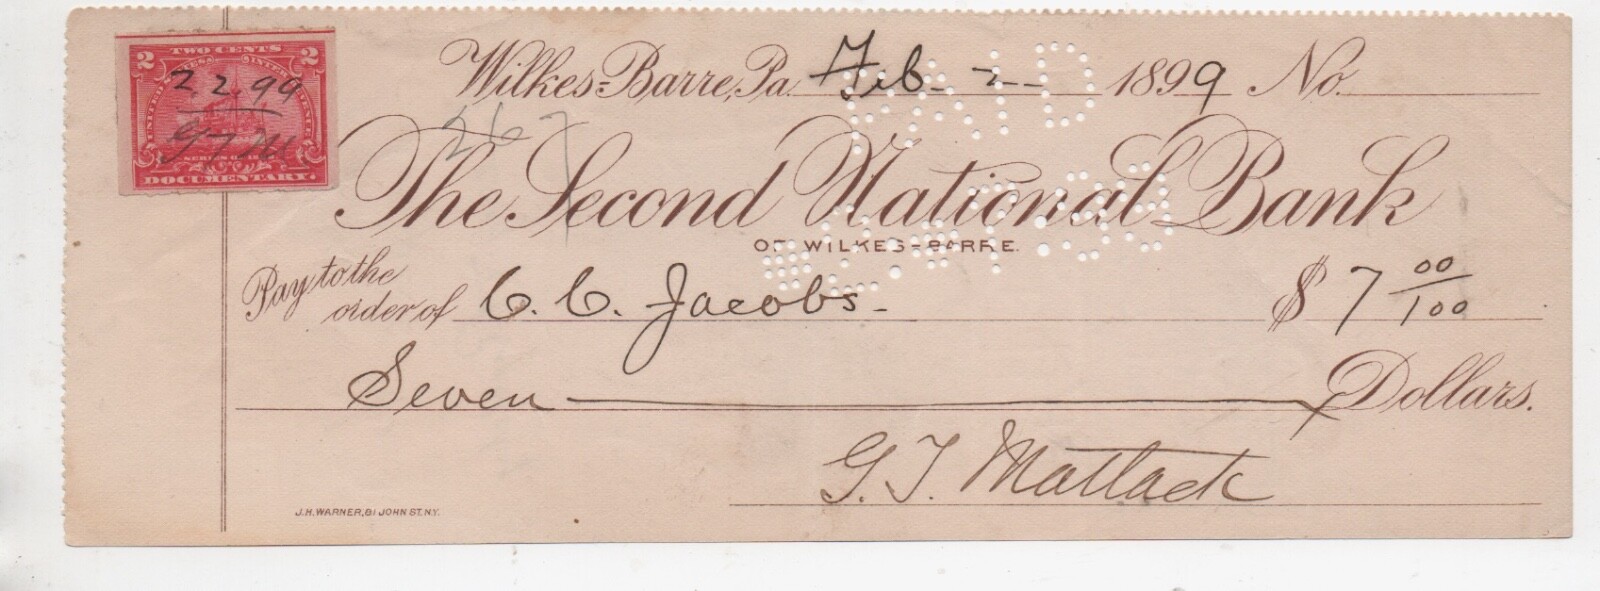 2 TWO CENTS 2
UNITED STATES INTER. REVENUE
2 2 99
G T M
SERIES OF 1898
DOCUMENTARY.
Wilkes-Barre, Pa. Feb. 2 1899 No.
PAID
267
The Second National Bank
OF WILKES-BARRE.
Pay to the order of C. C. Jacobs. $ 7 00/100
Seven Dollars.
G. T. Matlack
J.H. WARNER, 81 JOHN ST. N.Y.